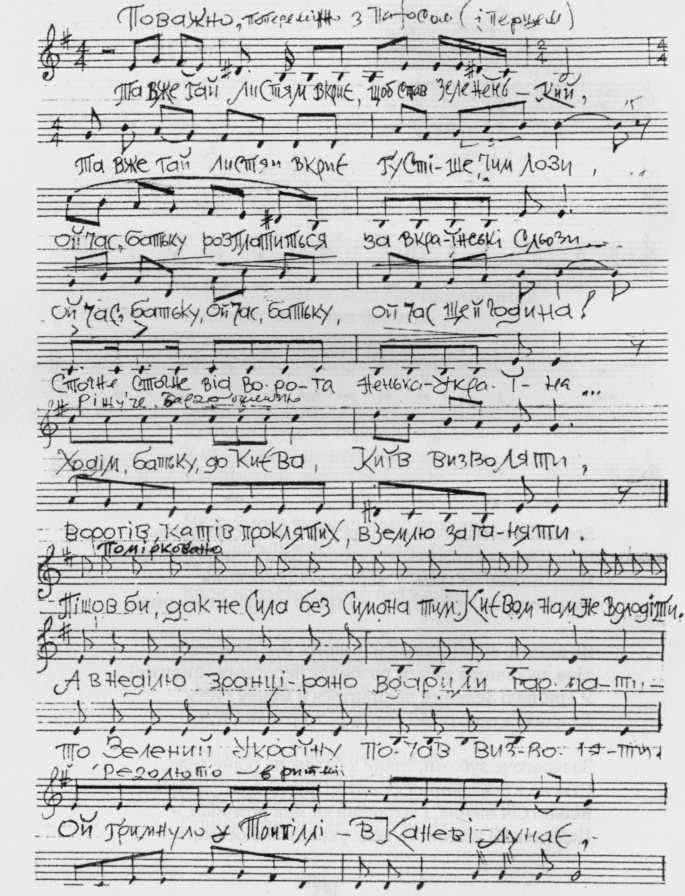 Поважно, попереміжно з Пафосом (і перцем)
Та вже гай листям вкриє, щоб став зелень-кий,
Та вже гай листям вкриє густі-ше, чим лози,...
Ой час, батьку розплатиться за вкра-їнські сльози...
Ой час, батьку, Ой час, батьку, ой час ще й година!
Стогне стогне від во-ро-та ненька-Укра-ї-на...
Рішуче,
Ходім, батьку, до Києва, Київ визволяти,
Ворогів, катів проклятих, в землю зага-няти.
Помірковано
Пішов би, дак не сила без Симона тим. Києвом нам не володіти.
А в неділю зранці-рано вдарили гар-ма-ти-
то Зелений Україну по-чав виз-во-ля-ти.
Резолюто - в ритмі
Ой гримнуло у Трипіллі - в Каневі лунає,